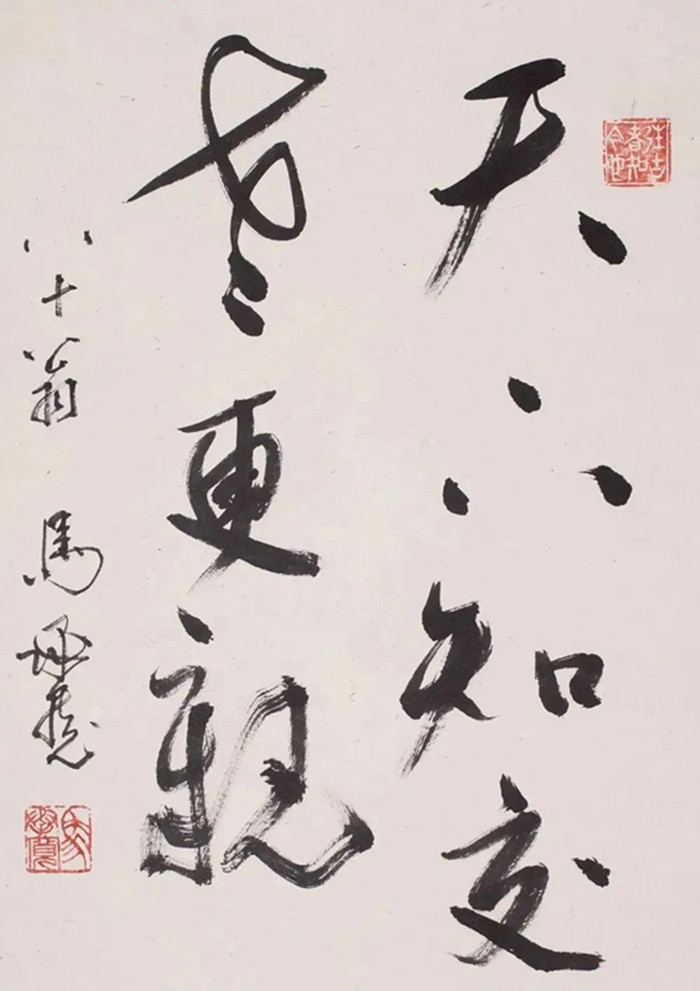 天下知交
老更親
八十翁 馬